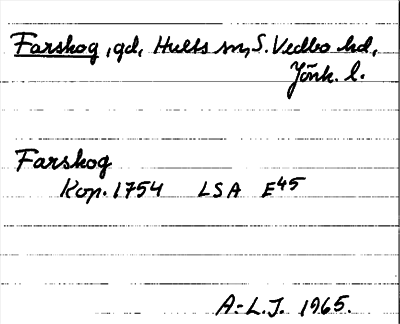 Farskog, gd, Hults sn, S. Vedbo hd,
Jönk. l.
Farskog
Kop. 1754 LSA E45
A-L.J. 1965.